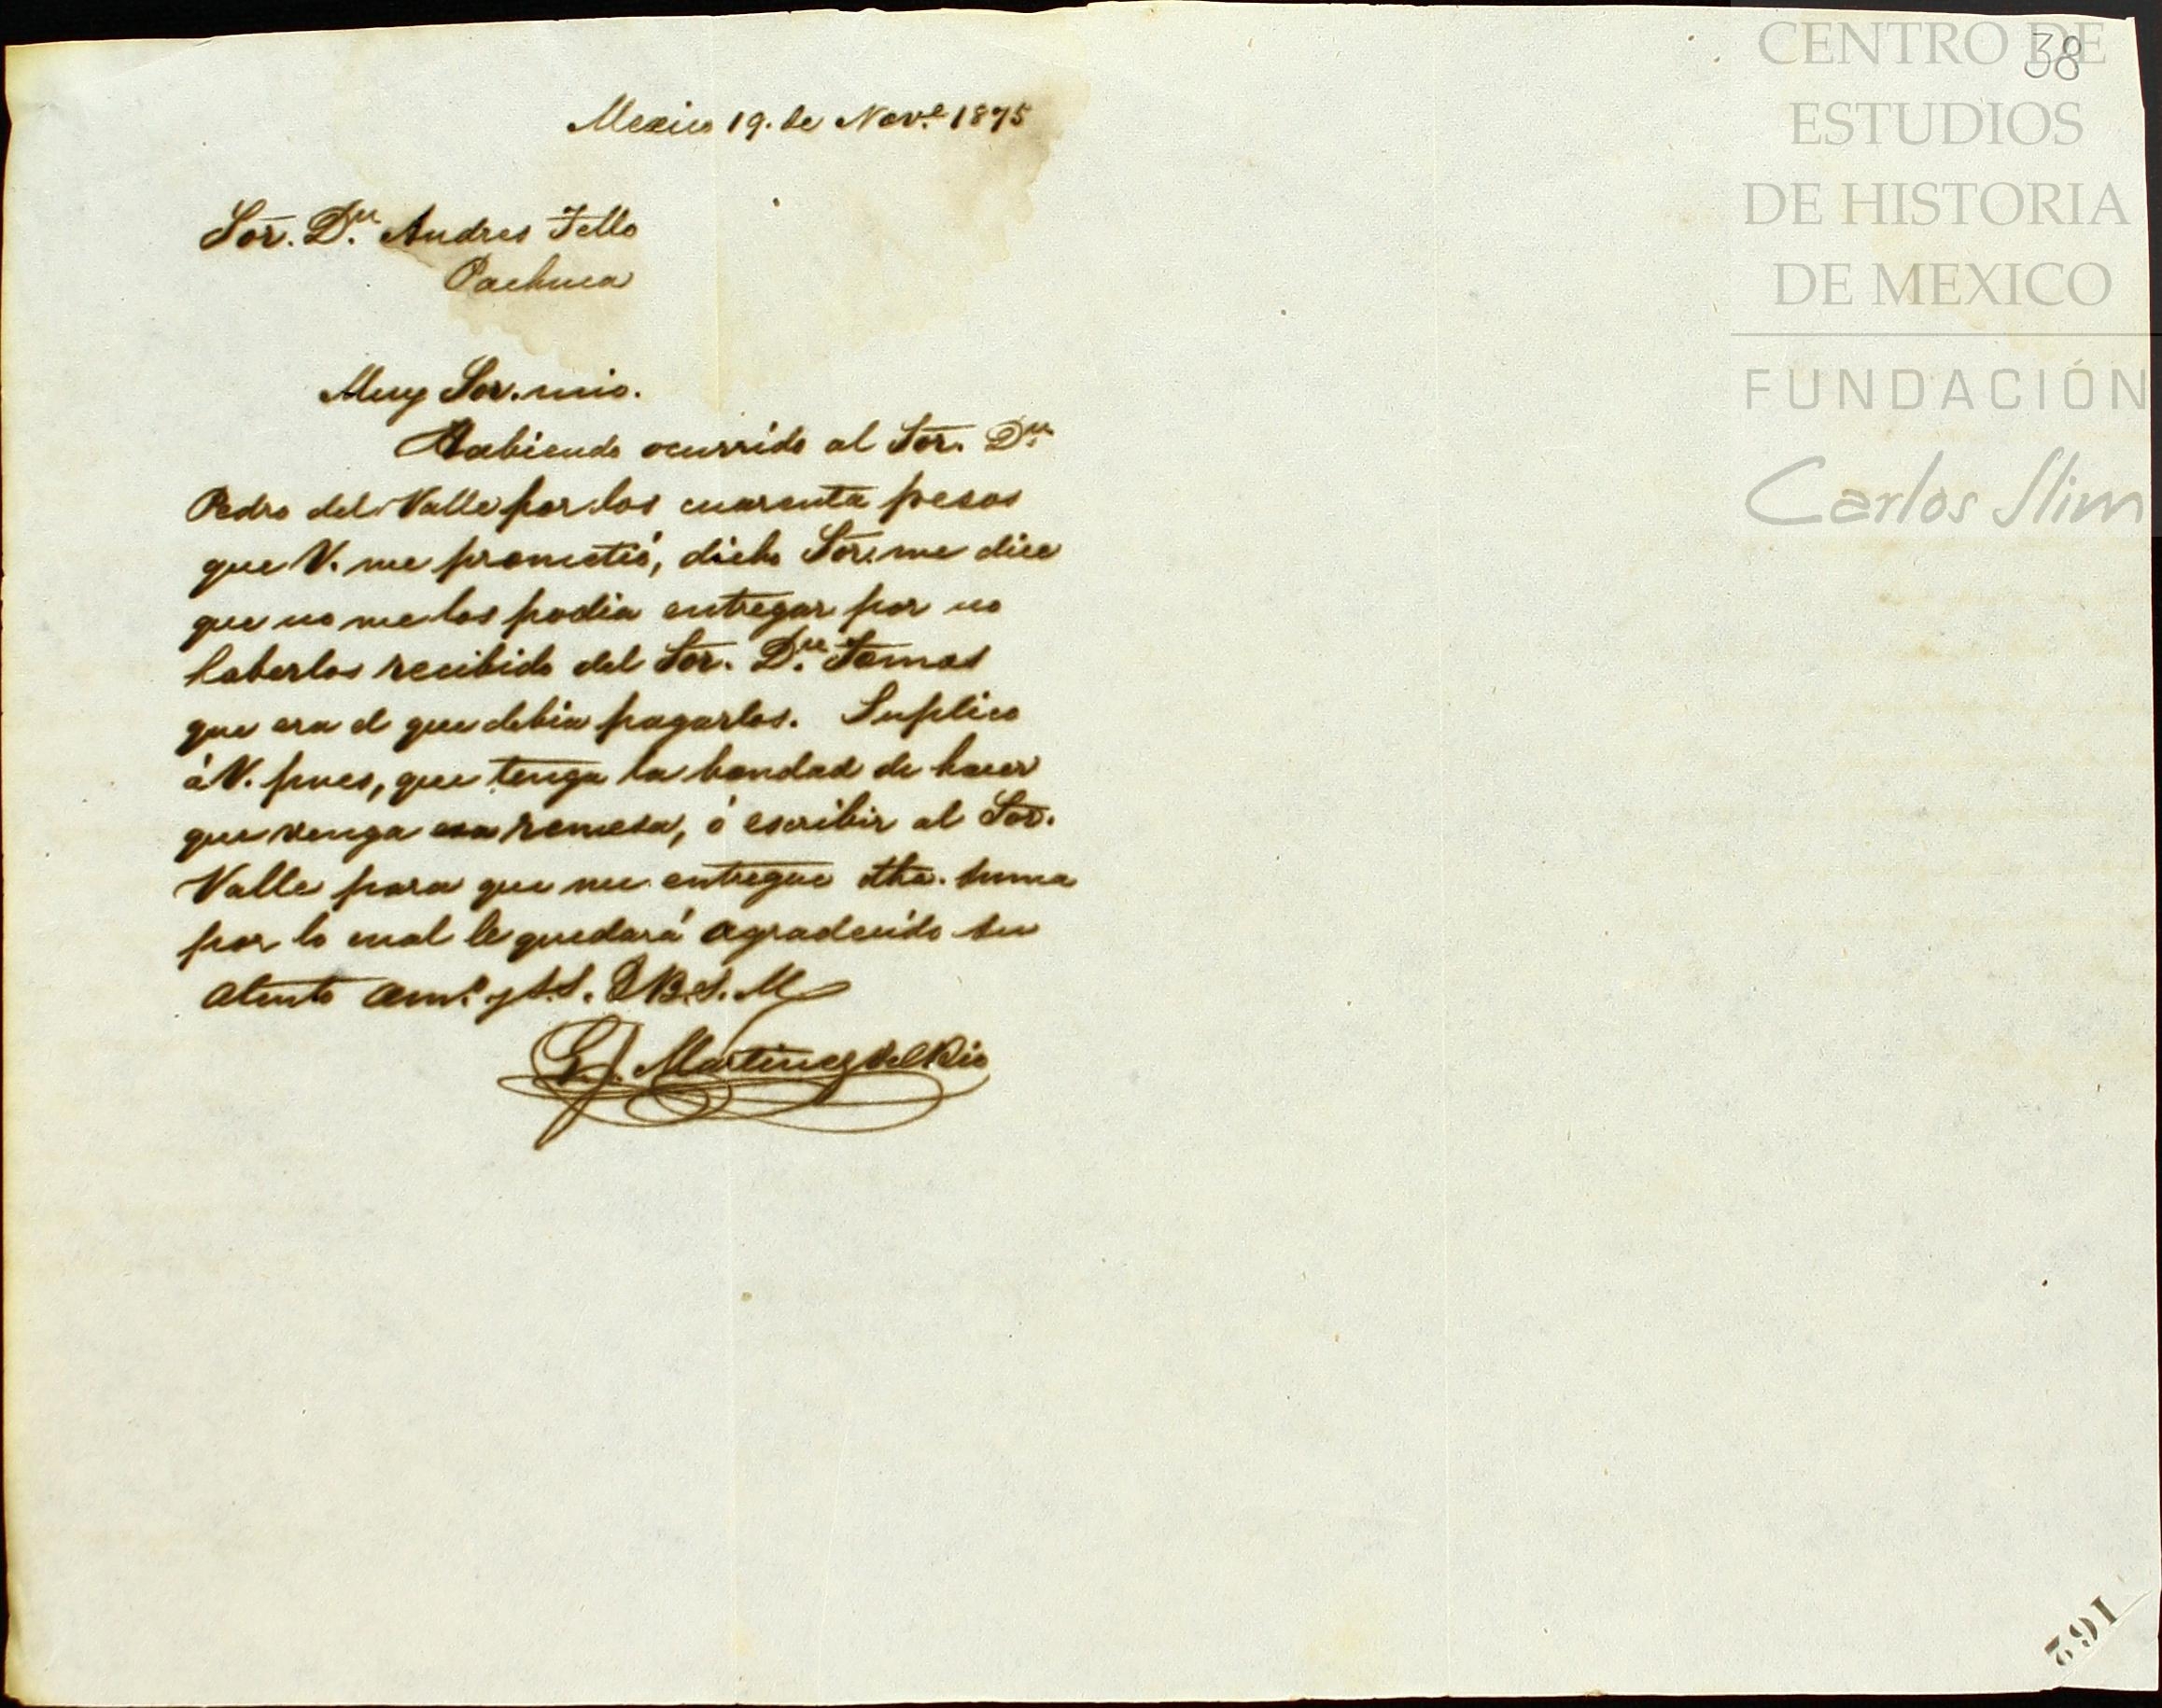 Mexico 19. de Nov.e 1875
Sor. D.n Andres Tello
Pachuca
Muy Sor. mio.
Habiendo ocurrido al Sor. D.n
Pedro del Valle por los cuarenta pesos
que V. me prometió, dicho Sor. me dice
que no me los podia entregar por no
haberlos recibido del Sor. D.n Tomas
que era el que debia pagarlos. Suplico
á V. pues, que tenga la bondad de hacer
que venga esa remesa, ó escribir al Sor.
Valle para que me entregue dha. suma
por lo cual le quedará agradecido su
atento am.o y S.S. Q B. S. M
G. Martinez del Rio
38
CENTRO DE
ESTUDIOS
DE HISTORIA
DE MEXICO
FUNDACIÓN
Carlos Slim
162